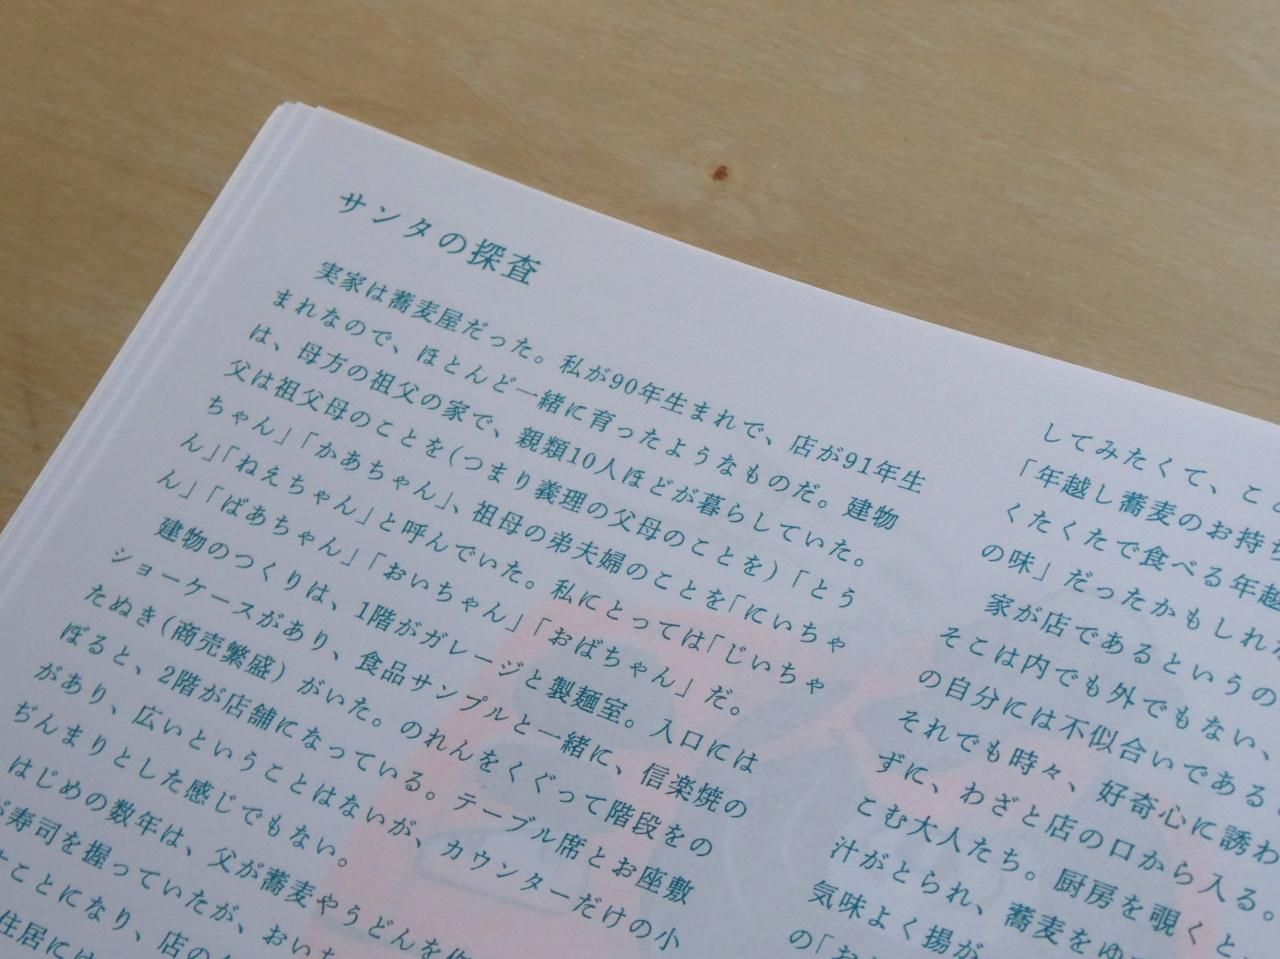 サンタの探査
実家は蕎麦屋だった。私が90年生まれで、店が91年生
まれなので、ほとんど一緒に育ったようなものだ。建物
は、母方の祖父の家で、親類10人ほどが暮らしていた。
父は祖父母のことを(つまり義理の父母のことを)「とう
ちゃん」「かあちゃん」、祖母の弟夫婦のことを「にいちゃ
ん」「ねえちゃん」と呼んでいた。私にとっては「じいちゃ
ん」「ばあちゃん」「おいちゃん」「おばちゃん」だ。
建物のつくりは、1階がガレージと製麺室。入口には
ショーケースがあり、食品サンプルと一緒に、信楽焼の
たぬき(商売繁盛)がいた。のれんをくぐって階段をの
ぼると、2階が店舗になっている。テーブル席とお座敷
があり、広いということはないが、カウンターだけの小
ぢんまりとした感じでもない。
はじめの数年は、父が蕎麦やうどんを
寿司を握っていたが、おい
ことになり、店の
住居に
してみたくて、こ
「年越し蕎麦のお持
くたくたで食べる年越
の味」だったかもしれ
家が店であるというの
そこは内でも外でもない、
の自分には不似合いである
それでも時々、好奇心に誘わ
ずに、わざと店の口から入る。
こむ大人たち。厨房を覗くと
汁がとられ、蕎麦をゆ
気味よく揚が
の「お